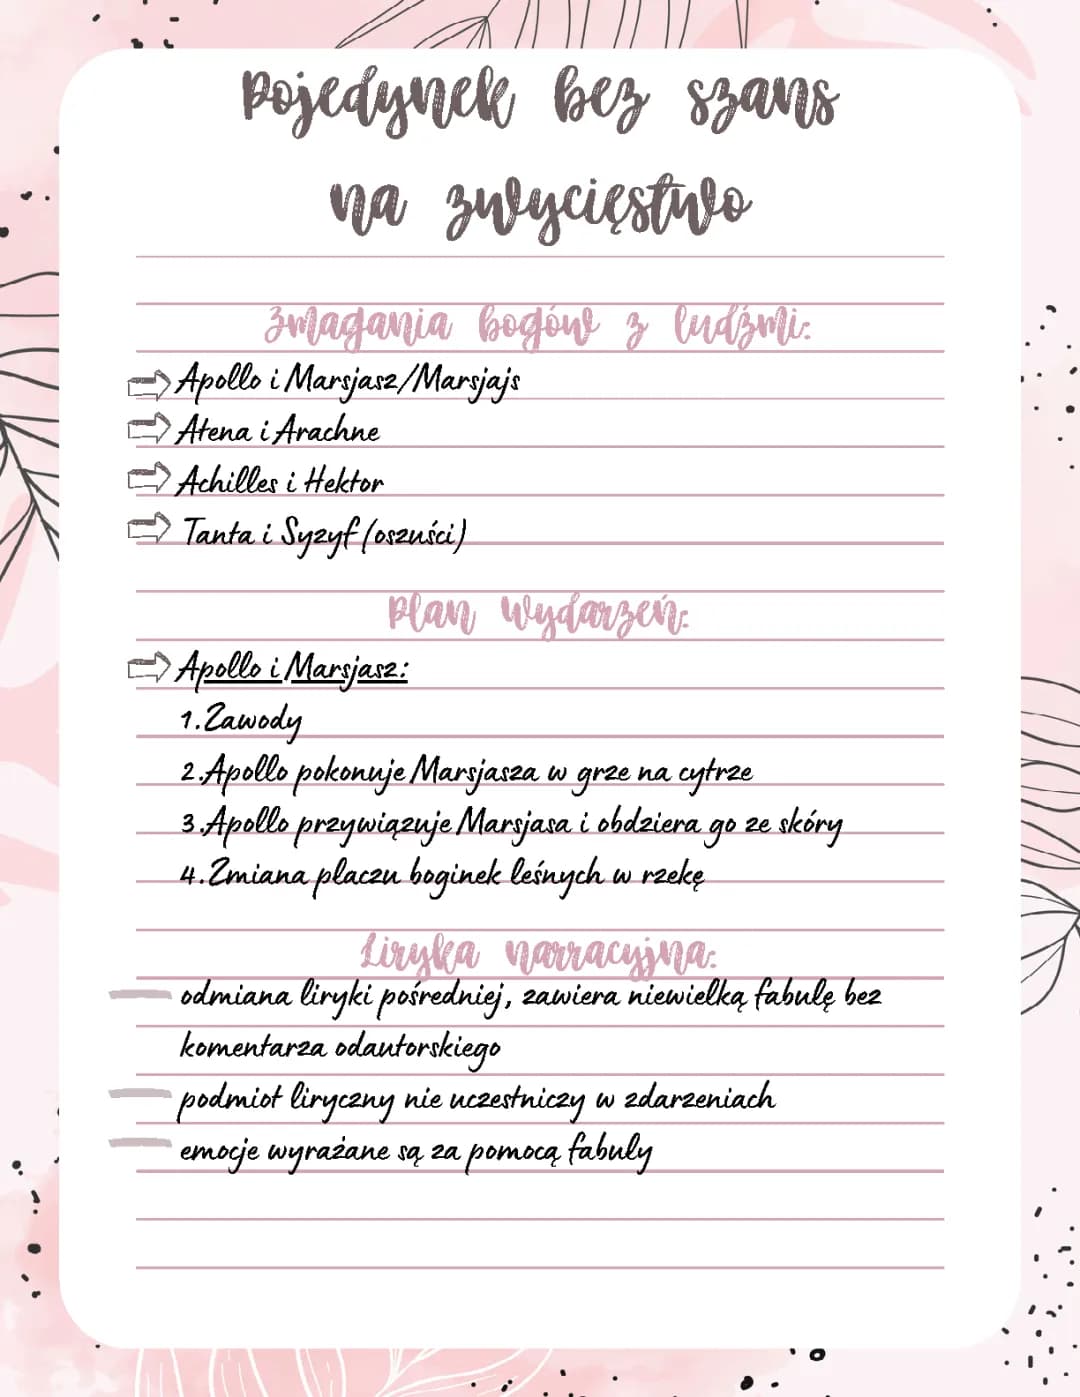 Pojedynek bez szans
na zwycięstwo
Zmagania bogów z ludźmi:
Apollo i Marsjasz/Marsjajs
Atena i Arachne
Achilles i Hektor
Tanta i Syzyf (oszuści)
Plan wydarzeń:
Apollo i Marsjasz:
1.Zawody
2.Apollo pokonuje Marsjasza w grze na cytrze
3.Apollo przywiązuje Marsjasa i obdziera go ze skóry
4.Zmiana płaczu boginek leśnych w rzekę
Liryka narracyjna:
odmiana liryki pośredniej, zawiera niewielką fabułę bez
komentarza odautorskiego
podmiot liryczny nie uczestniczy w zdarzeniach
emocje wyrażane są za pomocą fabuły